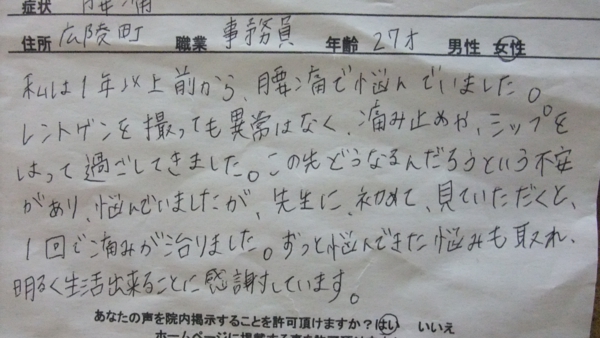 症状 腰痛
住所 広陵町 職業 事務員 年齢 27才 男性 女性
私は1年以上前から、腰痛で悩んでいました。
レントゲンを撮っても異常はなく、痛み止めや、シップを
はって過ごしてきました。この先どうなるんだろうという不安
があり、悩んでいましたが、先生に、初めて、見ていただくと、
1回で痛みが治りました。ずっと悩んできた悩みも取れ、
明るく生活出来ることに感謝しています。
あなたの声を院内掲示することを許可頂けますか？はい いいえ
ホームページに掲載する事を許可頂けますか